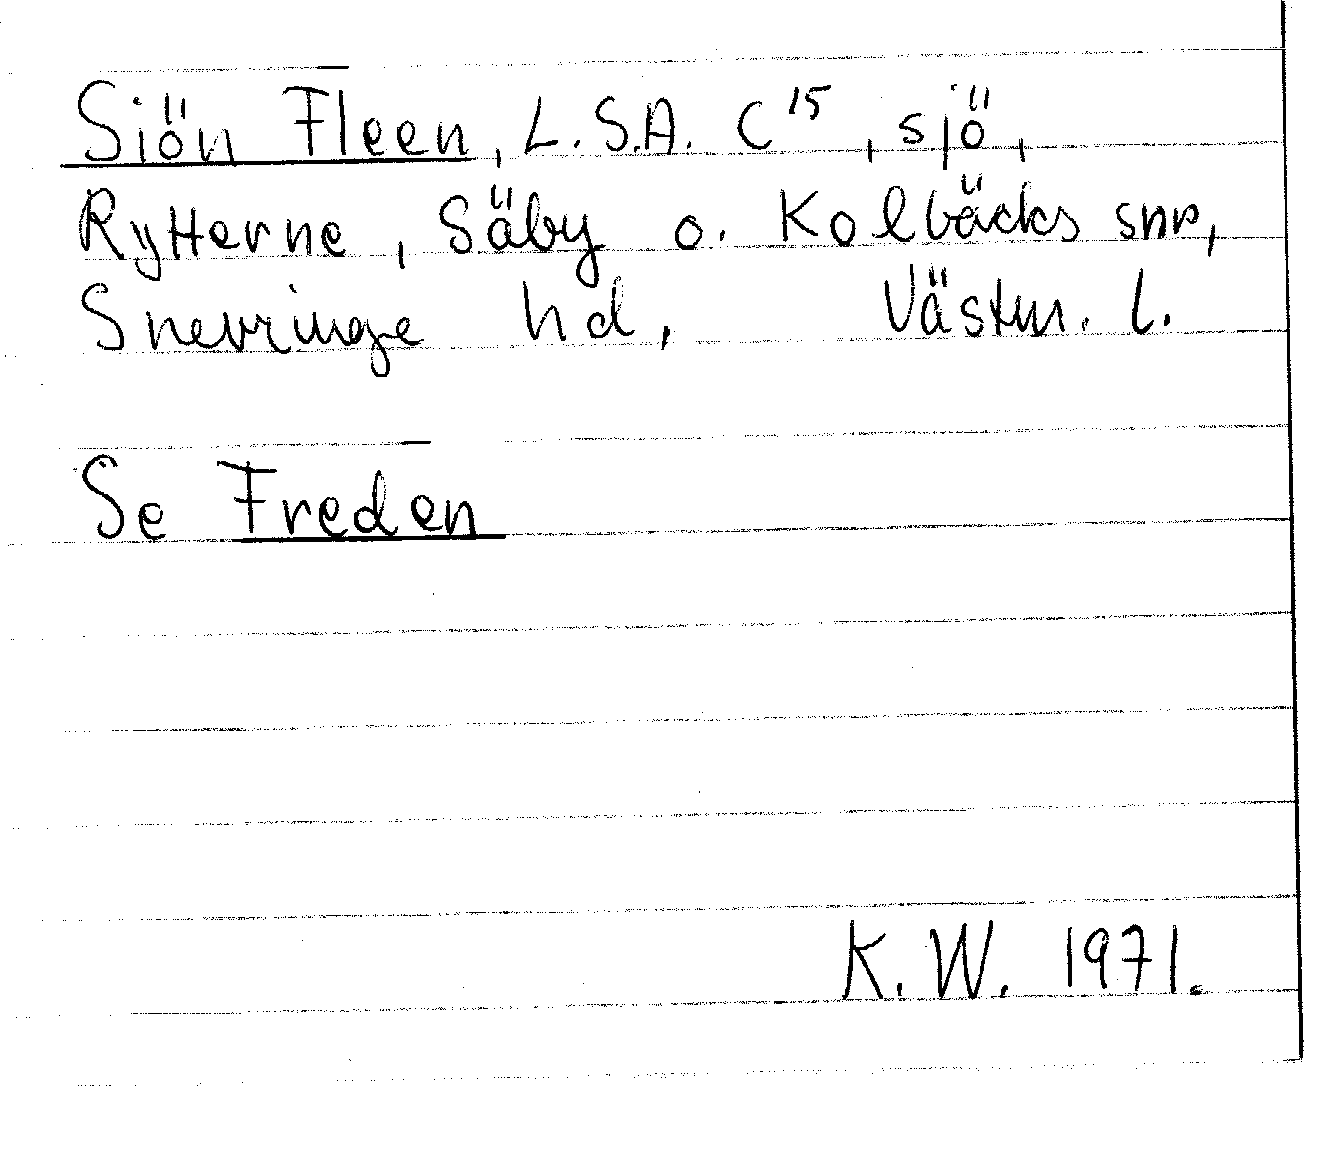 Siön Fleen, L.S.A. C15, sjö,
Rytterne, Säby o. Kolbäcks snr,
Snevringe hd, Västm. l.
Se Freden
K.W. 1971.